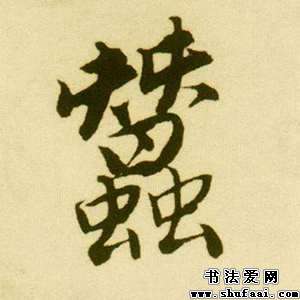 蠶
书法爱网
www.shufaai.com